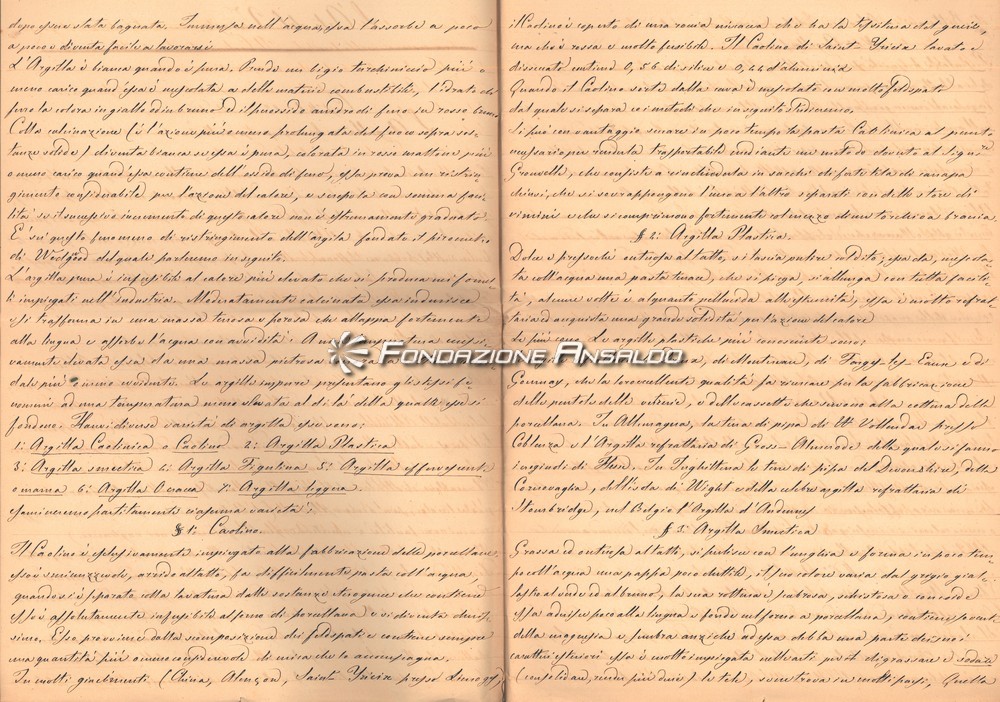 dopo essere stata bagnata. Immersa nell'acqua, essa l'assorbe a poco
a poco e diventa facile a lavorarsi
L'Argilla è bianca quando è pura. Prende un bigio turchiniccio più o
meno carico quand'essa è mescolata a delle materie combustibili, l'idrato di
ferro la colora in giallo od in bruno ed il perossido anidro di ferro in rosso bruno
Colla calcinazione (è l'azione più o meno prolungata del fuoco sopra sos-
tanze solide) diventa bianca se essa è pura, colorata in rosso mattone più
o meno carico quand'essa contiene dell'ossido di ferro, essa prova un ristrin-
gimento considerabile per l'azione del calore, e screpola con somma faci-
lità se il successivo incremento di questo calore non è estremamente graduato
È su questo fenomeno di ristringimento dell'argilla fondato il pirometro
di del quale parleremo in seguito.
L'argilla pura è infusibile al calore più elevato che si produca nei fornel-
li impiegati nell'industria. Moderatamente calcinata essa indurisce
e si trasforma in una massa terrosa e porosa che allappa fortemente
alla lingua e assorbe l'acqua con avidità
vamente elevata essa da una massa pietrosa
dale più o meno Le argille impure presentano gli stessi fe-
nomeni ad una temperatura meno elevata al di là della quale esse si
fondono. Havvi diverse varietà di argilla esse sono:
1° Argilla Caolinica o Caolino 2° Argilla Plastica
3° Argilla smectica 4° Argilla Figulina 5° Argilla effervescente
o marna 6° Argilla Ocracea 7° Argilla leggera.
Esamineremo partitamente ciascuna varietà;
§ 1° Caolino.
Il Caolino è esclusivamente impiegato alla fabbricazione delle porcellane
esso è arrido al tatto, fa difficilmente pasta coll'acqua
quando si è separato colla lavatura dalle sostanze che contiene
esso è assolutamente infusibile al forno di porcellana e si diventa duris-
simo. Esso proviene dalla scomposizione dei feldspati e contiene sempre
una quantità più o meno considerevole di mica che lo accompagna.
In molti giacimenti (China, Alençon, Saint Yrieix presso Limoges)
il Caolino è coperto di una roccia micacea che ha la tessitura del gneis,
ma che è rossa e molto fusibile. Il Caolino di Saint Yrieix lavato e
disseccato contiene 0,56 di silice e 0,44 d'alumina
Quando il Caolino sorte dalla cava è mescolato con molto Feldspati
dal quale si separa coi metodi che in seguito studieremo.
Si può con vantaggio in poco tempo la pasta Caolinica al punto
necessario per renderla trasportabile mediante un metodo dovuto al Sig.re
Grouvelle, che consiste a rinchiuderla in sacchi di fatti tela di canapa
chiusi, che si sovrappongono l'uno a l'altro separati con delle store di
vimini e che si comprimono fortemente col mezzo di un torchio a braccia.
§ 2° Argilla Plastica.
Dolce e pressoché untuosa al tatto, si lascia pulire col dito, essa da, mesco-
lata coll'acqua una pasta tenace, che si piega, si allunga con tutta facili-
tà, alcune volte è alquanto pellucida alle estremità, essa è molto refrat-
taria ed acquista una grande solidità per l'azione del calore
Le argille plastiche più conosciute sono:
di Montereau, di Forges-les-Eaux e di
Gournay, che la loro eccellente qualità fa ricercare per la fabbricazione
delle pentole delle vetrerie, e delle cassette che servono alla cottura della
porcellana. In Allemagna, la terra di pipa di Vallendar presso
Coblenza e l'Argilla refrattaria di Gross-Almerode della quale si fanno
i crogiuoli di Hesse. In Inghilterra le terre di pipa del Devonshire, della
Cornovaglia, dell'isola di Wight e della celebre argilla refrattaria di
Stourbridge, nel Belgio l'Argilla d'Ardennes
§ 3° Argilla Smectica
Grassa ed untuosa al tatto, si pulisce con l'unghia e forma in poco tem-
po coll'acqua una pappa poco duttile, il suo colore varia dal grigio gial-
lastro al verde ed al bruno, la sua rottura è petrosa, schistosa o concoide
Essa aderisce poco alla lingua e fonde nel forno a porcellana, contiene sovente
della magnesia e sembra anzi che ad essa debba una parte dei suoi
caratteri esteriori essa è molto impiegata nelle arti per digrassare e sodare
(consolidare, render più dure) le tele, se ne trova in molti paesi, Quella
Fondazione Ansaldo